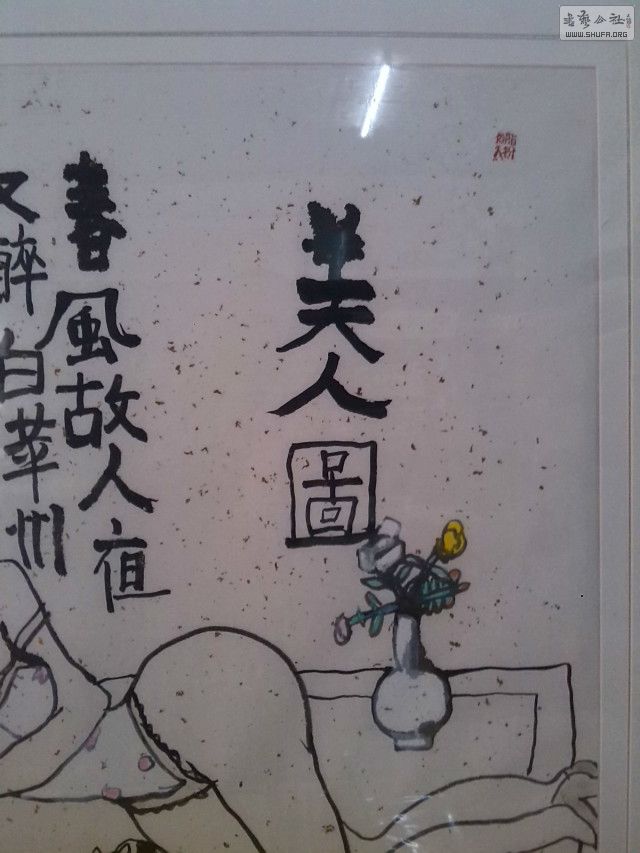 美人圖
春風故人夜
又醉白苹州
書藝公社
WWW.SHUFA.ORG